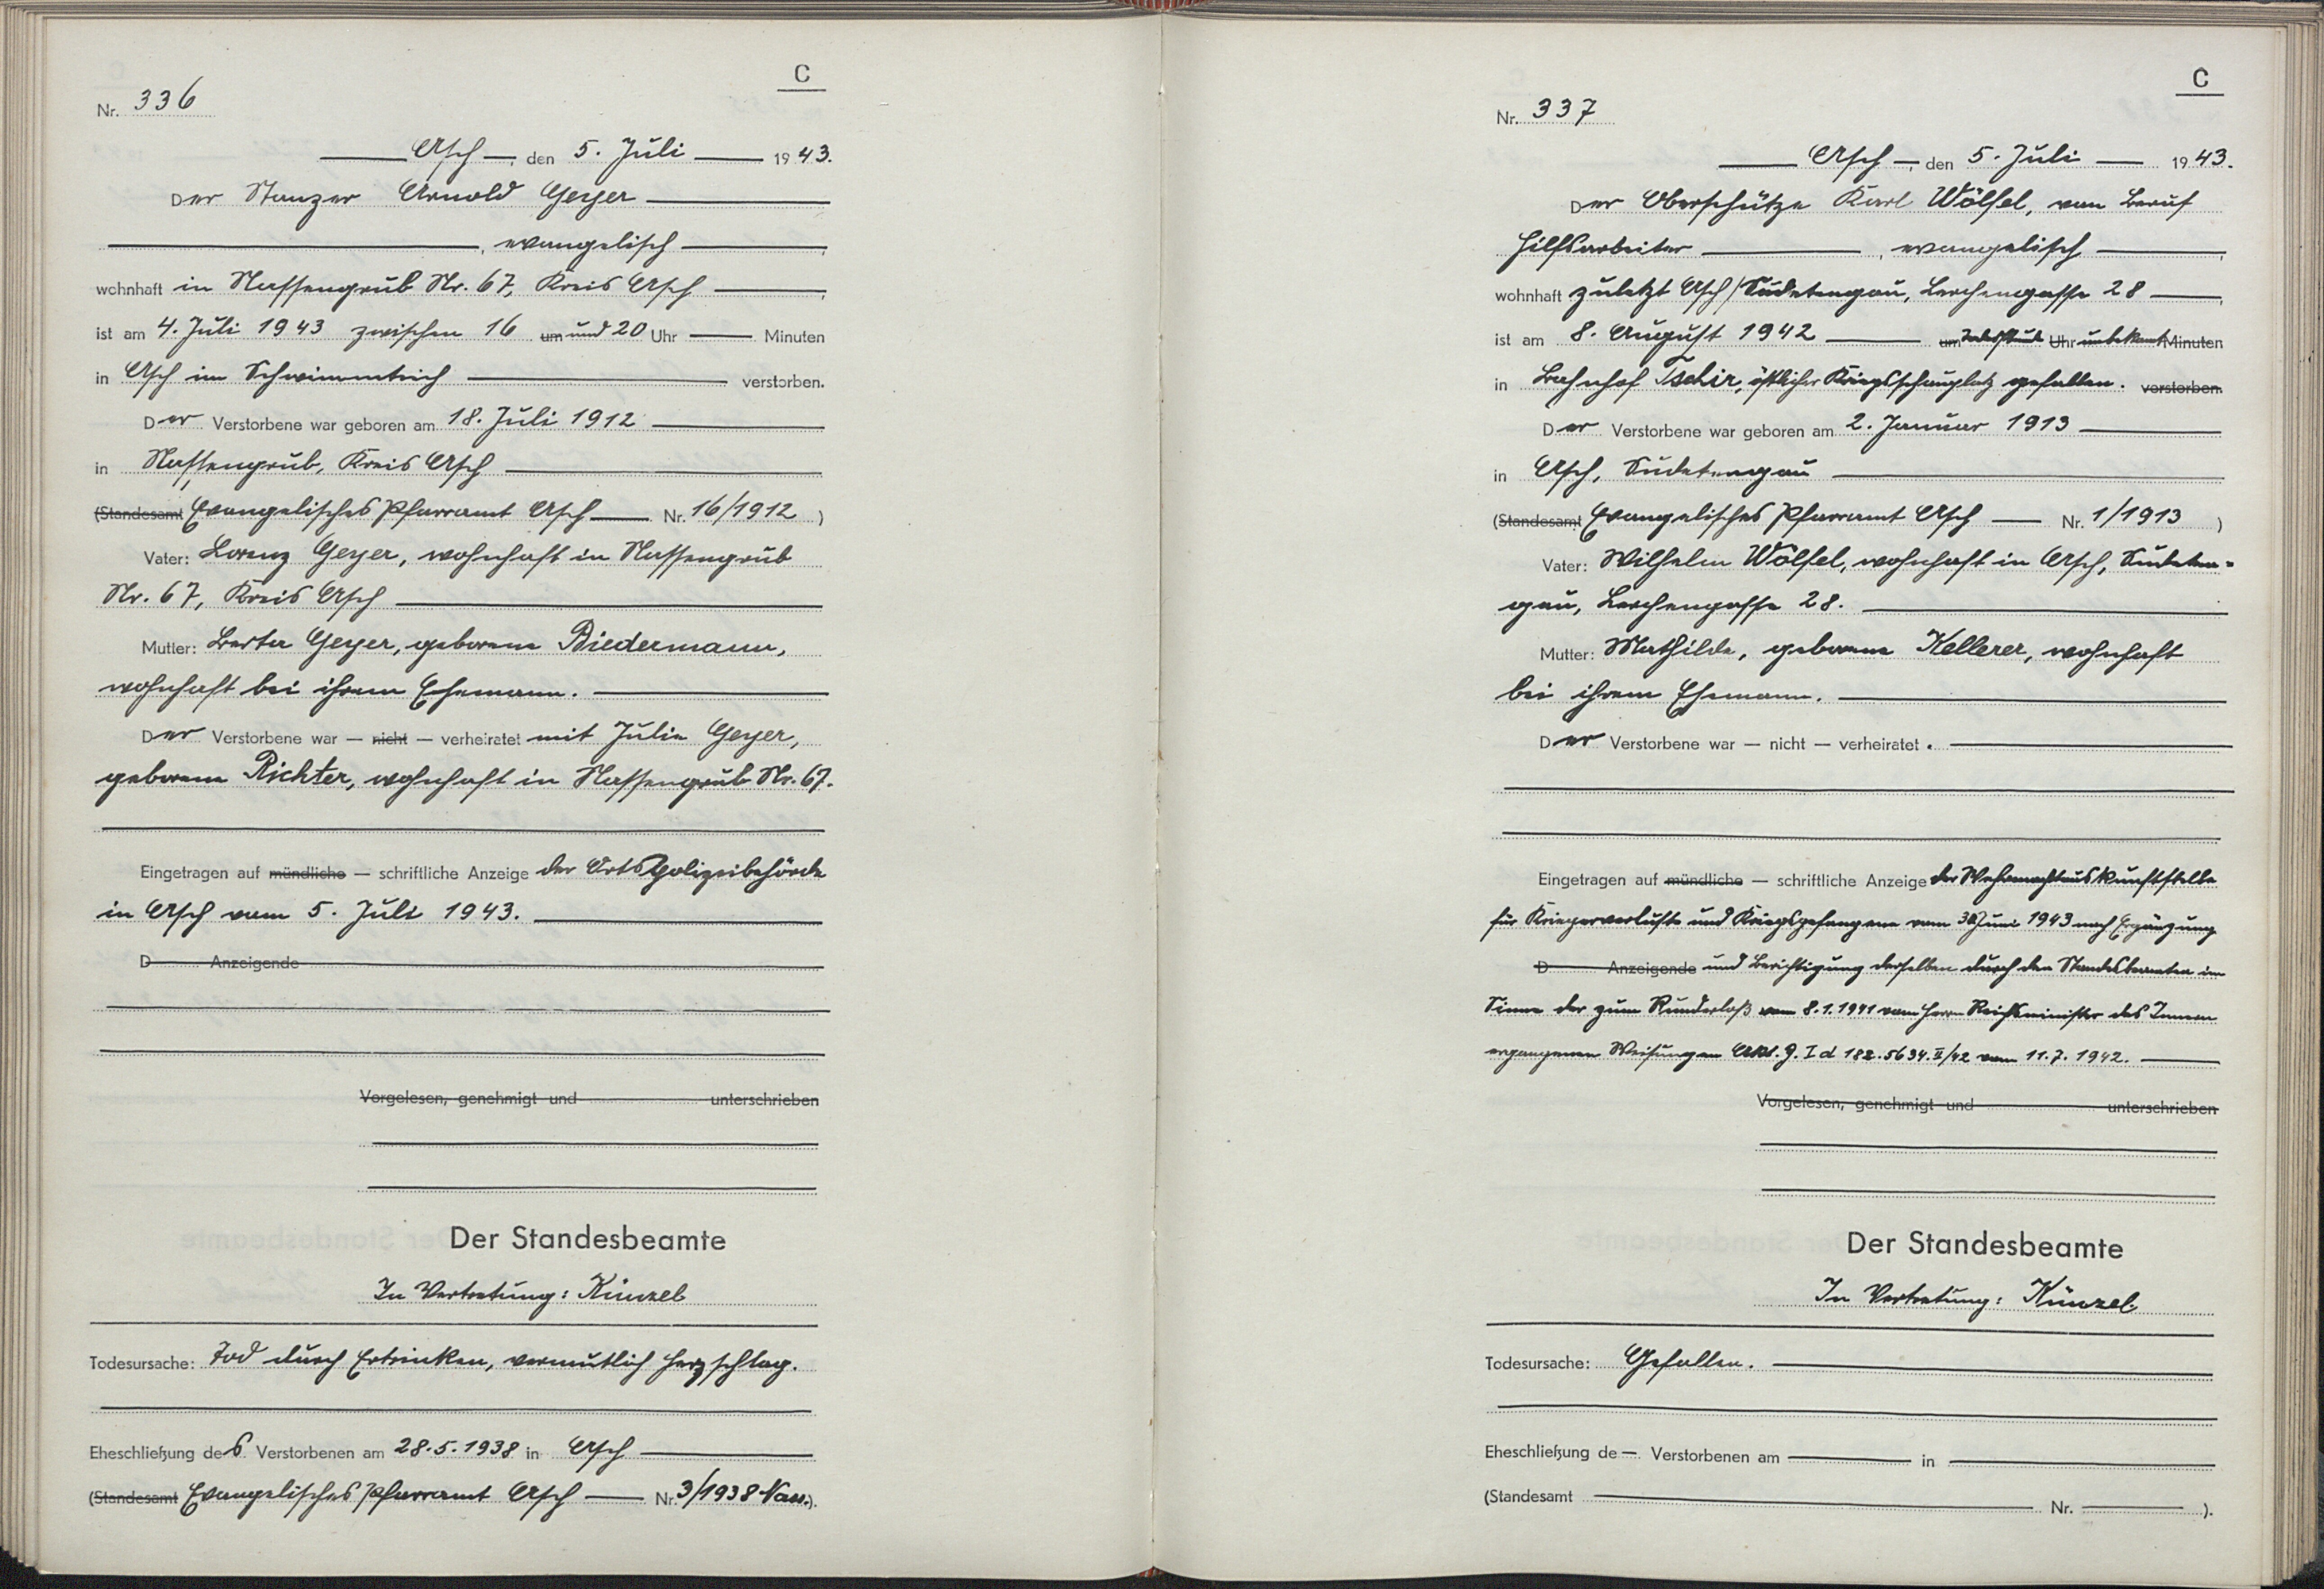 C
Nr. 336
Asch, den 5. Juli 1943.
Der Stanzer Arnold Geyer
, evangelisch,
wohnhaft in Nassengrub Nr. 67, Kreis Asch,
ist am 4. Juli 1943 zwischen 16 um und 20 Uhr Minuten
in Asch im Schwimmteich verstorben.
Der Verstorbene war geboren am 18. Juli 1912
in Nassengrub, Kreis Asch
(Standesamt Evangelisches Pfarramt Asch Nr. 16/1912)
Vater: Lorenz Geyer, wohnhaft in Nassengrub
Nr. 67, Kreis Asch
Mutter: Berta Geyer, geborene Biedermann,
wohnhaft bei ihrem Ehemann.
Der Verstorbene war — nicht — verheiratet mit Julie Geyer,
geborene Richter, wohnhaft in Nassengrub Nr. 67.
Eingetragen auf mündliche — schriftliche Anzeige der Ortspolizeibehörde
in Asch vom 5. Juli 1943.
D Anzeigende
Vorgelesen, genehmigt und unterschrieben
Der Standesbeamte
In Vertretung: Künzel
Todesursache: Tod durch Ertrinken, vermutlich Herzschlag.
Eheschließung des Verstorbenen am 28.5.1938 in Asch
(Standesamt Evangelisches Pfarramt Asch Nr. 3/1938 Nass.).
C
Nr. 337
Asch, den 5. Juli 1943.
Der Oberschütze Karl Wölfel, von Beruf
Hilfsarbeiter, evangelisch,
wohnhaft zuletzt Asch/Sudetengau, Lerchengasse 28,
ist am 8. August 1942 um Todesstunde Uhr unbekannt Minuten
in Bahnhof Tschir, östlicher Kriegsschauplatz gefallen. verstorben.
Der Verstorbene war geboren am 2. Januar 1913
in Asch, Sudetengau
(Standesamt Evangelisches Pfarramt Asch Nr. 1/1913)
Vater: Wilhelm Wölfel, wohnhaft in Asch, Sudeten=
gau, Lerchengasse 28.
Mutter: Mathilde, geborene Kellerer, wohnhaft
bei ihrem Ehemann.
Der Verstorbene war — nicht — verheiratet.
Eingetragen auf mündliche — schriftliche Anzeige der Wehrmachtauskunftstelle
für Kriegerverluste und Kriegsgefangene vom 30. Juni 1943 nach Ergänzung
D Anzeigende und Berichtigung derselben durch den Standesbeamten im
Sinne der zum Runderlaß vom 8.1.1941 vom Herrn Reichsminister des Innern
ergangenen Weisungen I d 182.5634.II/42 vom 11.7.1942.
Vorgelesen, genehmigt und unterschrieben
Der Standesbeamte
In Vertretung: Künzel
Todesursache: Gefallen.
Eheschließung de Verstorbenen am in
(Standesamt Nr. ).